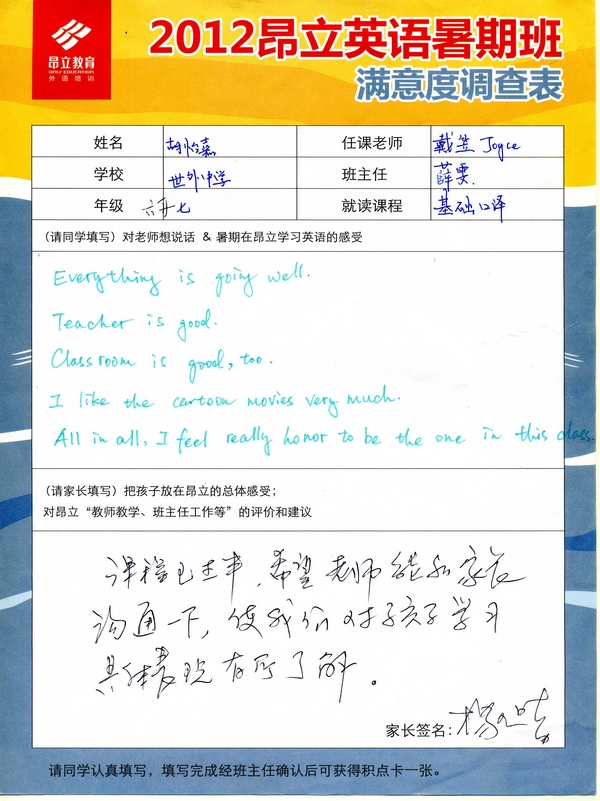 昂立教育
ONLY EDUCATION
外语培训
2012昂立英语暑期班
满意度调查表
姓名 胡怡嘉 任课老师 戴笠 Joyce
学校 世外中学 班主任 薛雯
年级 七 就读课程 基础口译
(请同学填写)对老师想说话 & 暑期在昂立学习英语的感受
Everything is going well.
Teacher is good.
Classroom is good, too.
I like the cartoon movies very much.
All in all, I feel really honor to be the one in this class.
(请家长填写)把孩子放在昂立的总体感受;
对昂立“教师教学、班主任工作等”的评价和建议
课程已过半,希望老师能和家长
沟通一下,使我们对孩子学习
具体表现有所了解。
家长签名:杨
请同学认真填写,填写完成经班主任确认后可获得积点卡一张。